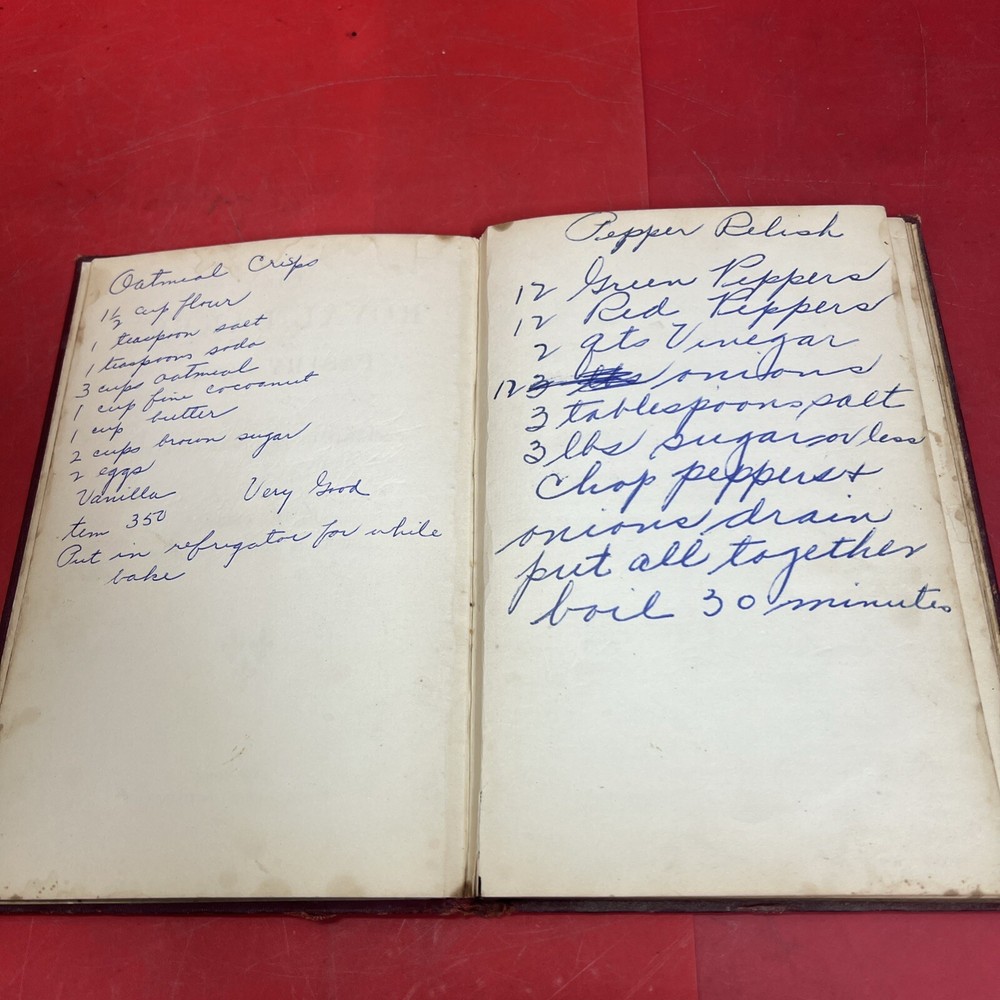 Oatmeal Crisps
1 1/2 cup flour
1 teaspoon salt
1 teaspoons soda
3 cups oatmeal
1 cup fine cocoanut
1 cup butter
2 cups brown sugar
2 eggs
Vanilla Very Good
tem 350
Put in refrigator for while
bake
Pepper Relish
12 Green Peppers
12 Red Peppers
2 qts Vinegar
12 onions
3 tablespoons salt
3 lbs sugar or less
chop peppers +
onions drain
put all together
boil 30 minutes